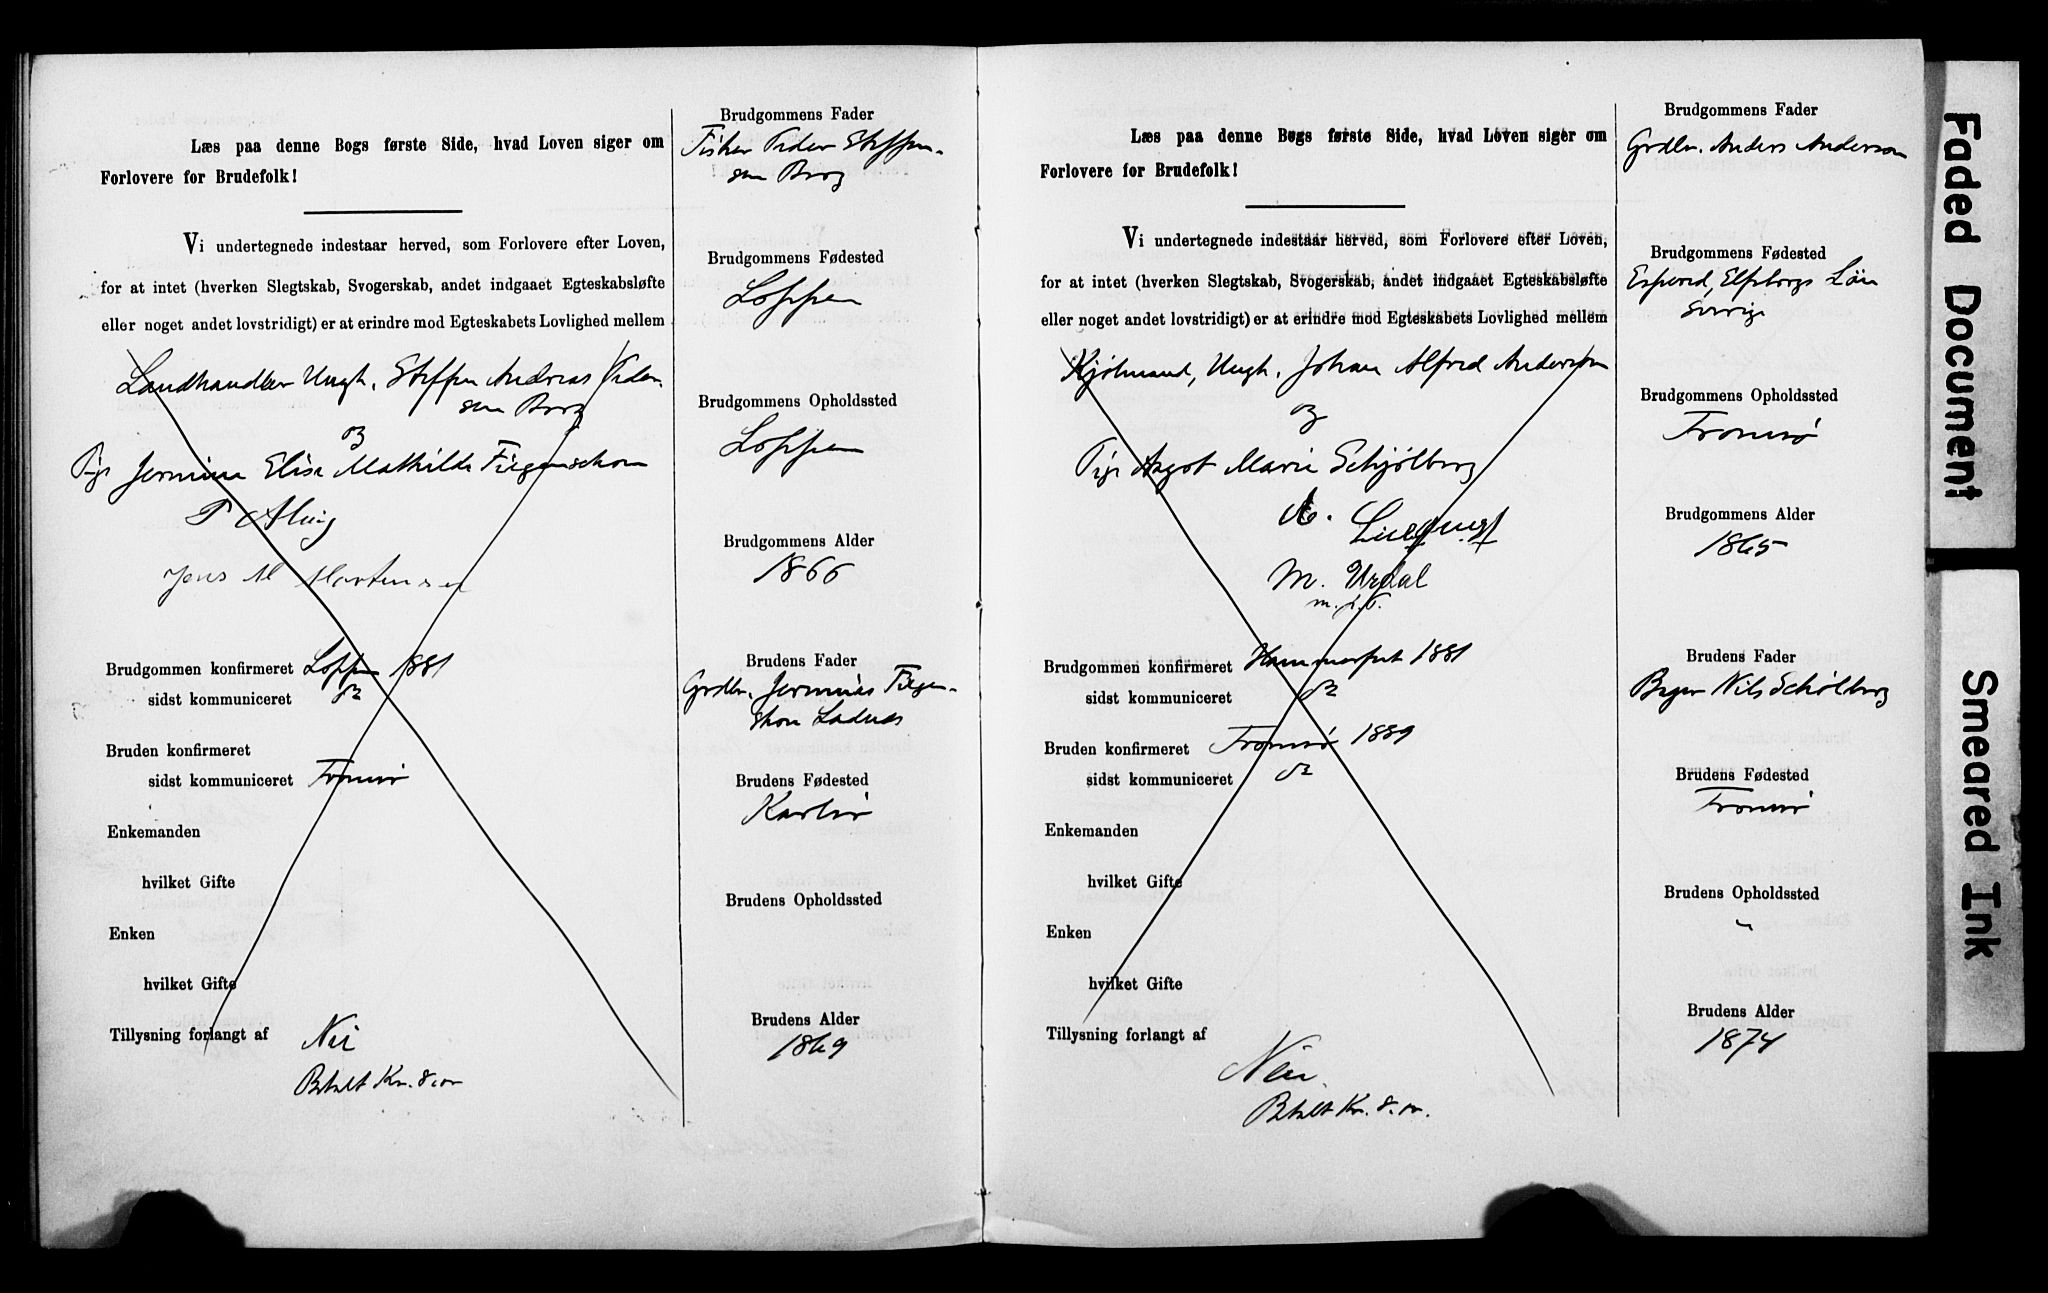 Læs paa denne Bogs første Side, hvad Loven siger om
Forlovere for Brudefolk!
Vi undertegnede indestaar herved, som Forlovere efter Loven,
for at intet (hverken Slegtskab, Svogerskab, andet indgaaet Egteskabsløfte
eller noget andet lovstridigt) er at erindre mod Egteskabets Lovlighed mellem
Landhandler Ungk. Steffen Andreas Peder-
sen Borg
og
Pige Jermine Elise Mathilde Figenschou
Jens M Mortensen
Brudgommen konfirmeret Loppen 1881
sidst kommuniceret do
Bruden konfirmeret
sidst kommuniceret Tromsø
Enkemanden
hvilket Gifte
Enken
hvilket Gifte
Tillysning forlangt af Nei
Betalt Kr. 8.00
Brudgommens Fader
Fisker Peder Steffen-
sen Borg
Brudgommens Fødested
Loppen
Brudgommens Opholdssted
Loppen
Brudgommens Alder
1866
Brudens Fader
Grdbr. Jermias Figen-
skou
Brudens Fødested
Karlsø
Brudens Opholdssted
Brudens Alder
1869
Læs paa denne Bogs første Side, hvad Loven siger om
Forlovere for Brudefolk!
Vi undertegnede indestaar herved, som Forlovere efter Loven,
for at intet (hverken Slegtskab, Svogerskab, andet indgaaet Egteskabsløfte
eller noget andet lovstridigt) er at erindre mod Egteskabets Lovlighed mellem
Kjølmand, Ungk. Johan Alfred Anderson
og
Pige Aagot Marie Schjølberg
M. Urdal
m. p. P.
Brudgommen konfirmeret Hammerfest 1881
sidst kommuniceret do
Bruden konfirmeret Tromsø 1889
sidst kommuniceret do
Enkemanden
hvilket Gifte
Enken
hvilket Gifte
Tillysning forlangt af
Nei.
Betalt Kr. 8.00.
Brudgommens Fader
Grdbr. Anders Anderson
Brudgommens Fødested
Espered, Elfsborgs Län
Sverige
Brudgommens Opholdssted
Tromsø
Brudgommens Alder
1865
Brudens Fader
Bager Nils Schølberg
Brudens Fødested
Tromsø
Brudens Opholdssted
"
Brudens Alder
1874
Faded Document
Smeared Ink